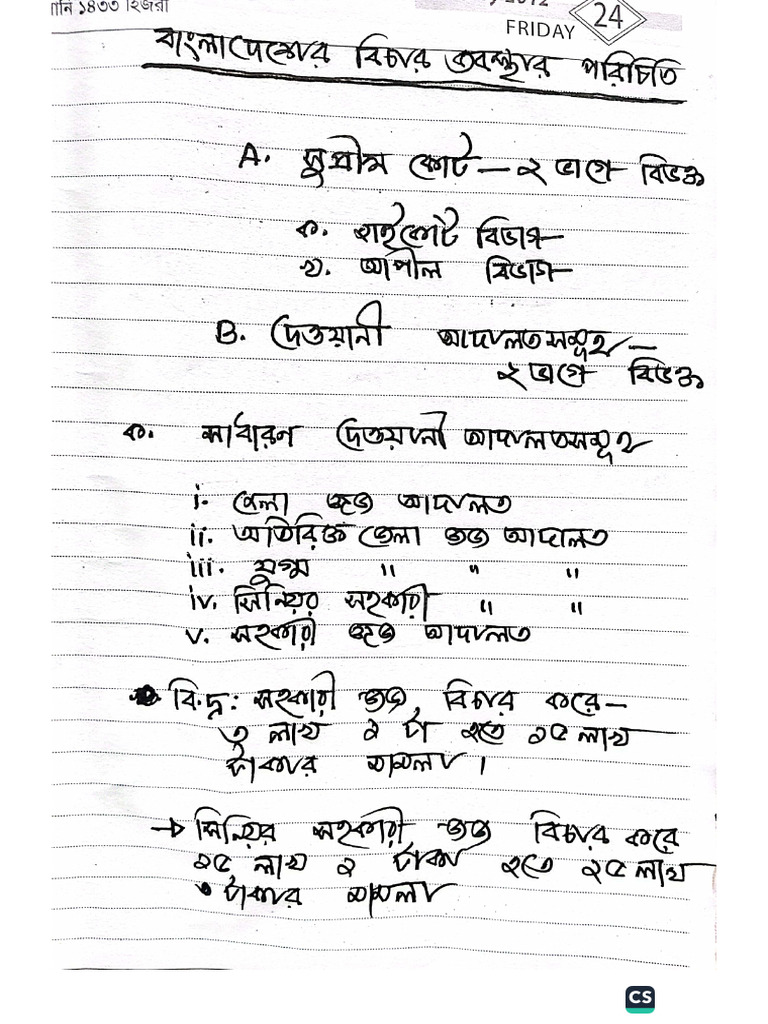 ১৪৩৩ হিজরী
2012
FRIDAY 24
বাংলাদেশের বিচার ব্যবস্থার পরিচিতি
A. সুপ্রীম কোর্ট — ২ ভাগে বিভক্ত
ক. হাইকোর্ট বিভাগ
খ. আপীল বিভাগ
B. দেওয়ানী আদালতসমূহ —
২ ভাগে বিভক্ত
ক. সাধারণ দেওয়ানী আদালতসমূহ
i. জেলা জজ আদালত
ii. অতিরিক্ত জেলা জজ আদালত
iii. যুগ্ম " " "
iv. সিনিয়র সহকারী " "
v. সহকারী জজ আদালত
বি:দ্র: সহকারী জজ, বিচার করে –
টা হতে ১৫ লাখ
টাকার মামলা।
→ সিনিয়র সহকারী জজ বিচার করে
১৫ লাখ ১ টাকা হতে ২৫ লাখ
টাকার মামলা
CS